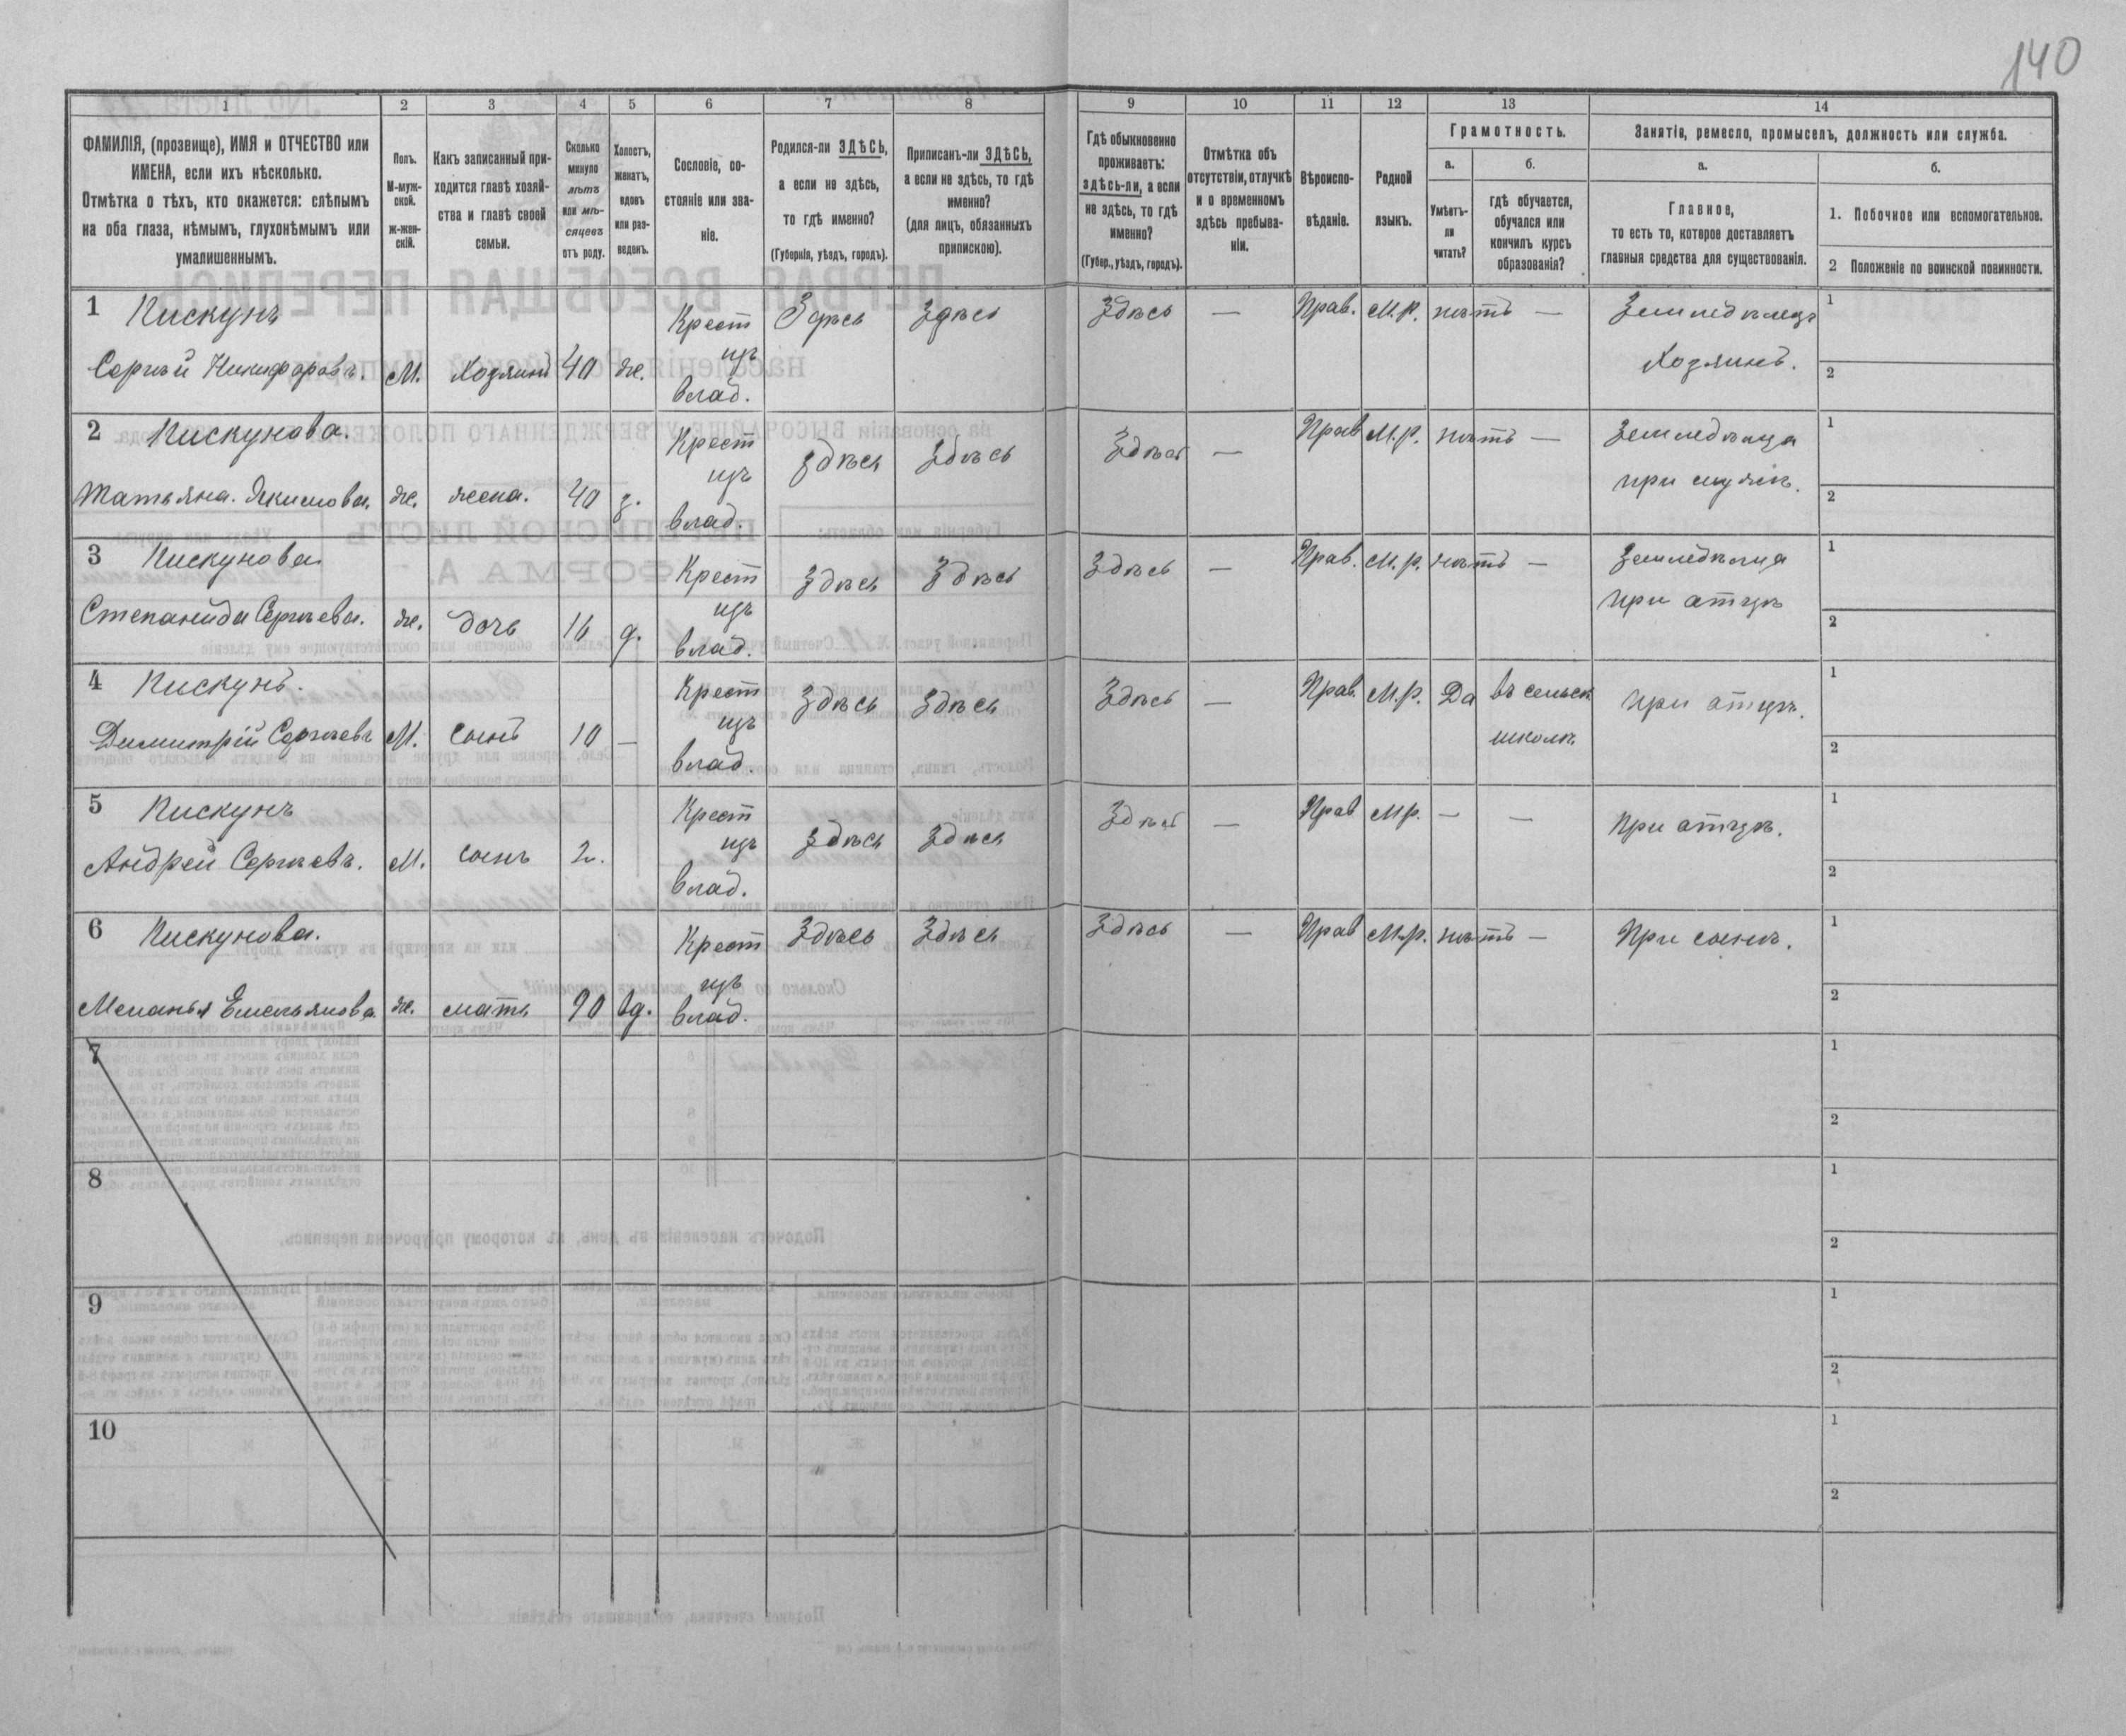 140
1 2 3 4 5 6 7 8 9 10 11 12 13 14
ФАМИЛІЯ, (прозвище), ИМЯ и ОТЧЕСТВО или
ИМЕНА, если ихъ нѣсколько.
Отмѣтка о тѣхъ, кто окажется: слѣпымъ
на оба глаза, нѣмымъ, глухонѣмымъ или
умалишеннымъ.
Полъ.
М-муж-
ской.
Ж-жен-
скій.
Какъ записанный при-
ходится главѣ хозяй-
ства и главѣ своей
семьи.
Сколько
минуло
лѣтъ
или мѣ-
сяцевъ
отъ роду.
Холостъ,
женатъ,
вдовъ
или раз-
веденъ.
Сословіе, со-
стояніе или зва-
ніе.
Родился-ли ЗДѢСЬ,
а если не здѣсь,
то гдѣ именно?
(Губернія, уѣздъ, городъ).
Приписанъ-ли ЗДѢСЬ,
а если не здѣсь, то гдѣ
именно?
(для лицъ, обязанныхъ
припискою).
Гдѣ обыкновенно
проживаетъ:
здѣсь-ли, а если
не здѣсь, то гдѣ
именно?
(Губер., уѣздъ, городъ).
Отмѣтка объ
отсутствіи, отлучкѣ
и о временномъ
здѣсь пребыва-
ніи.
Вѣроиспо-
вѣданіе.
Родной
языкъ.
Грамотность.
а.
Умѣетъ-
ли
читать?
б.
гдѣ обучается,
обучался или
кончилъ курсъ
образованія?
Занятіе, ремесло, промыселъ, должность или служба.
а.
Главное,
то есть то, которое доставляетъ
главныя средства для существованія.
б.
1. Побочное или вспомогательное.
2 Положеніе по воинской повинности.
1 Пискунъ Крест Здѣсь Здѣсь Здѣсь — Прав. М.р. нѣтъ — Земледѣлецъ 1
Сергѣй Никифоровъ. М. Хозяинъ 40 ж. изъ Хозяинъ. 2
влад.
2 Пискунова. Крест Здѣсь Здѣсь Здѣсь — Прав М.р. нѣтъ — Земледѣлица 1
Татьяна. Якимова. ж. жена. 40 з. изъ при мужѣ. 2
влад.
3 Пискунова Крест Здѣсь Здѣсь Здѣсь — Прав. М.р. нѣтъ — Земледѣлица 1
Степанида Сергѣева. ж. дочь 16 д. изъ при отцѣ 2
влад.
4 Пискунъ. Крест Здѣсь Здѣсь Здѣсь — Прав. М.р. Да въ сельск при отцѣ. 1
Димитрій Сергѣевъ М. сынъ 10 — изъ школѣ 2
влад.
5 Пискунъ Крест Здѣсь Здѣсь Здѣсь — Прав М.р. — — При отцѣ. 1
Андрей Сергѣевъ. М. сынъ 2. изъ 2
влад.
6 Пискунова. Крест Здѣсь Здѣсь Здѣсь — Прав М.р. нѣтъ — При сынѣ. 1
Меланья Емельянова ж. мать 90 вд. изъ 2
влад.
7 1
2
8 1
2
9 1
2
10 1
2